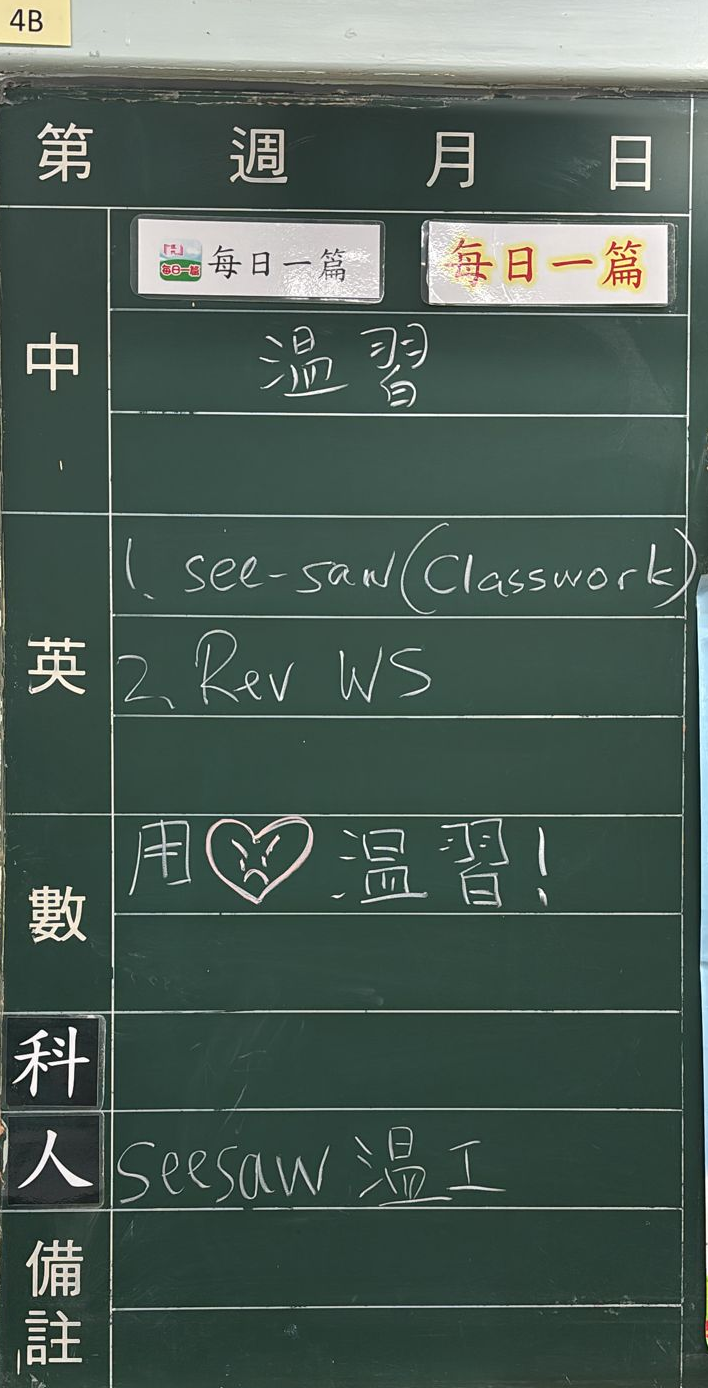 4B
第 週 月 日
每日一篇 每日一篇 每日一篇
中
溫習
英
1. see-saw (Classwork)
2. Rev WS
數
用 溫習!
科
人
seesaw 溫工
備註